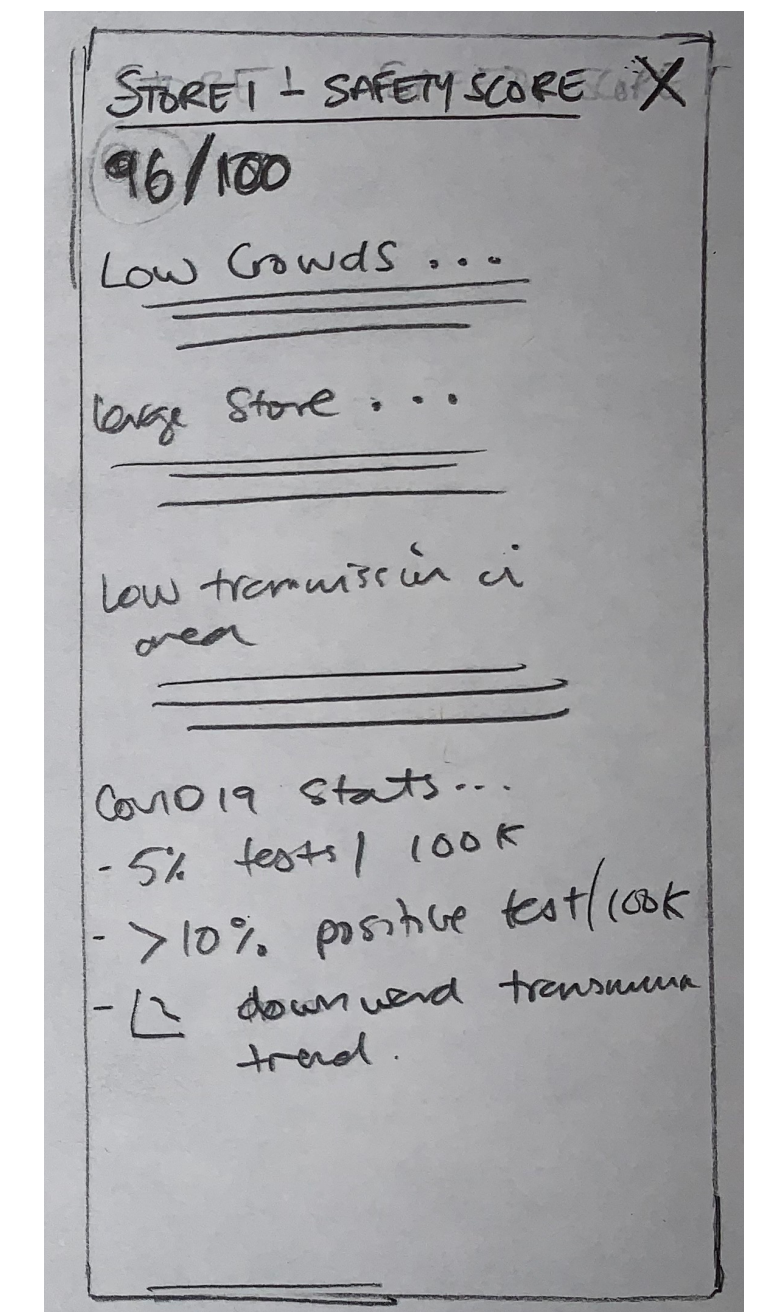 STORE 1 - SAFETY SCORE X
96/100
Low Crowds ...
large store ...
Low transmission in
area
COVID 19 stats...
- 5% tests / 100K
- >10% positive test/100K
- downward transmission
trend.